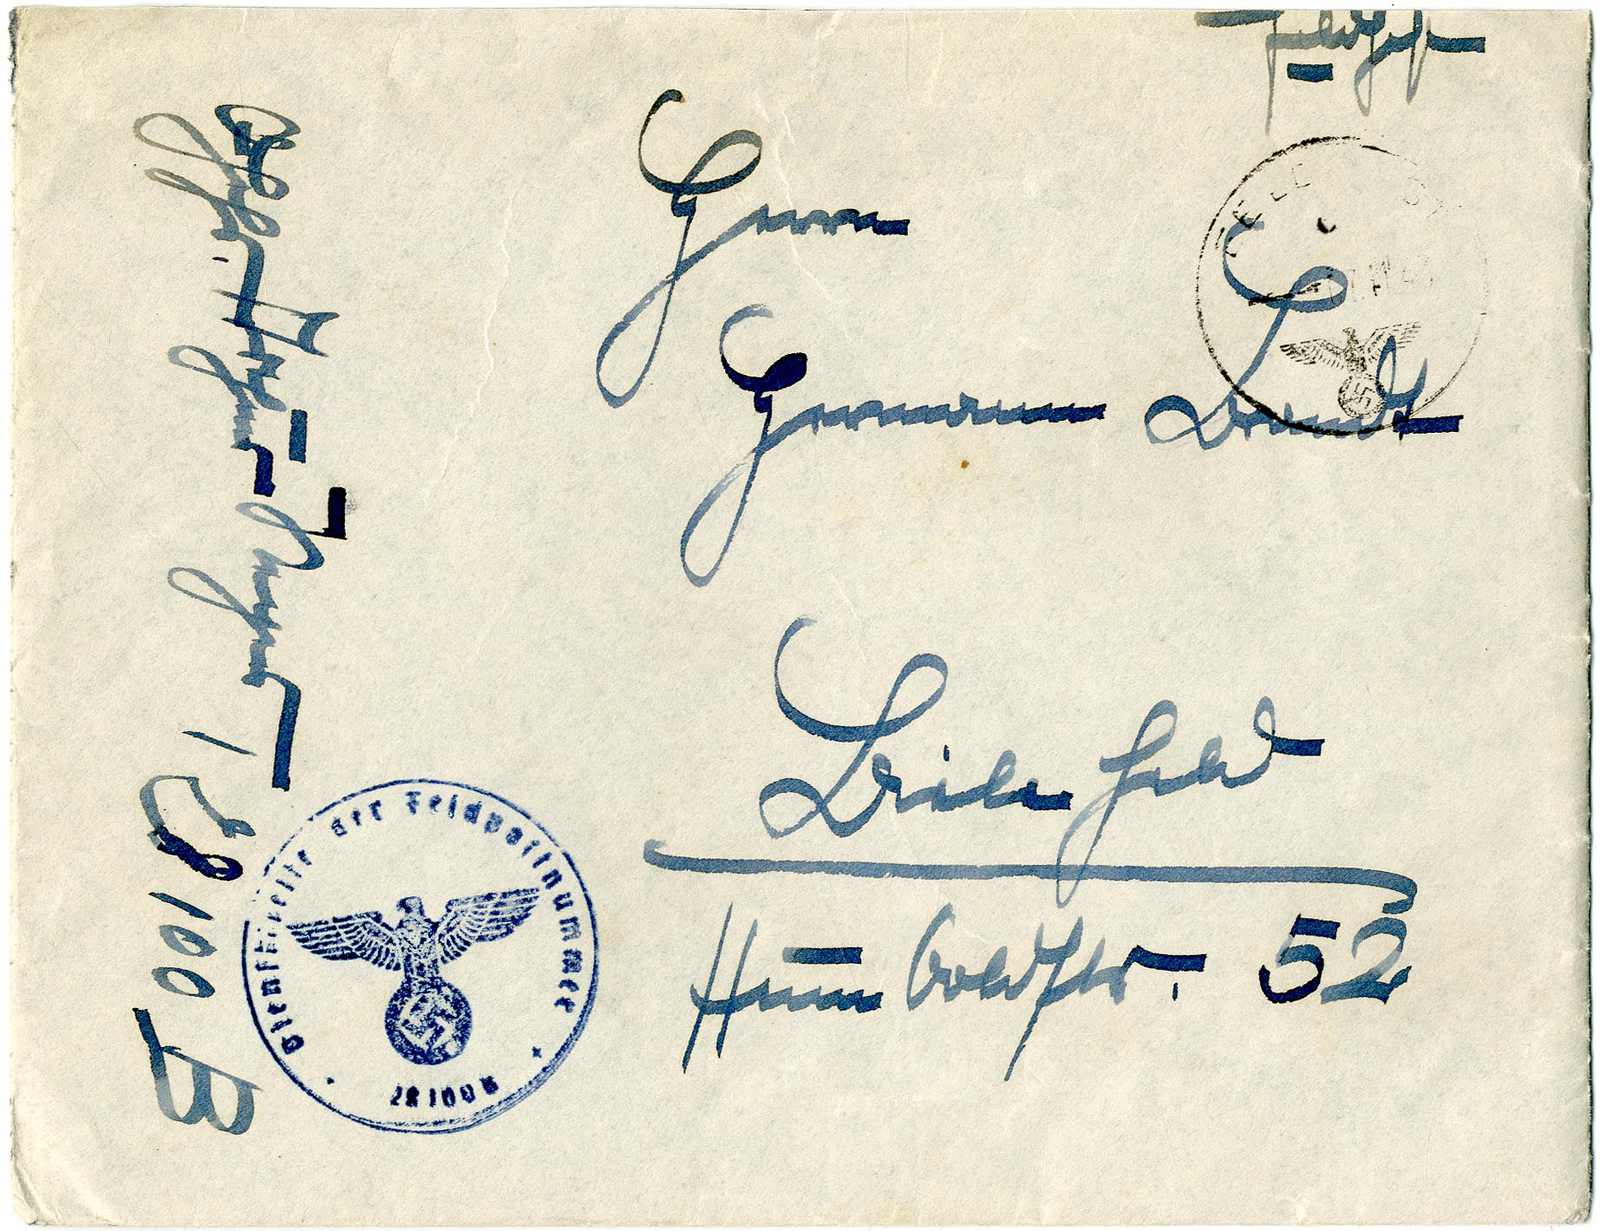 Feldpost
Herrn
Hermann Brandt
Bielefeld
Humboldtstr. 52
28100 B
FELDPOST
Dienststelle der Feldpostnummer
28100